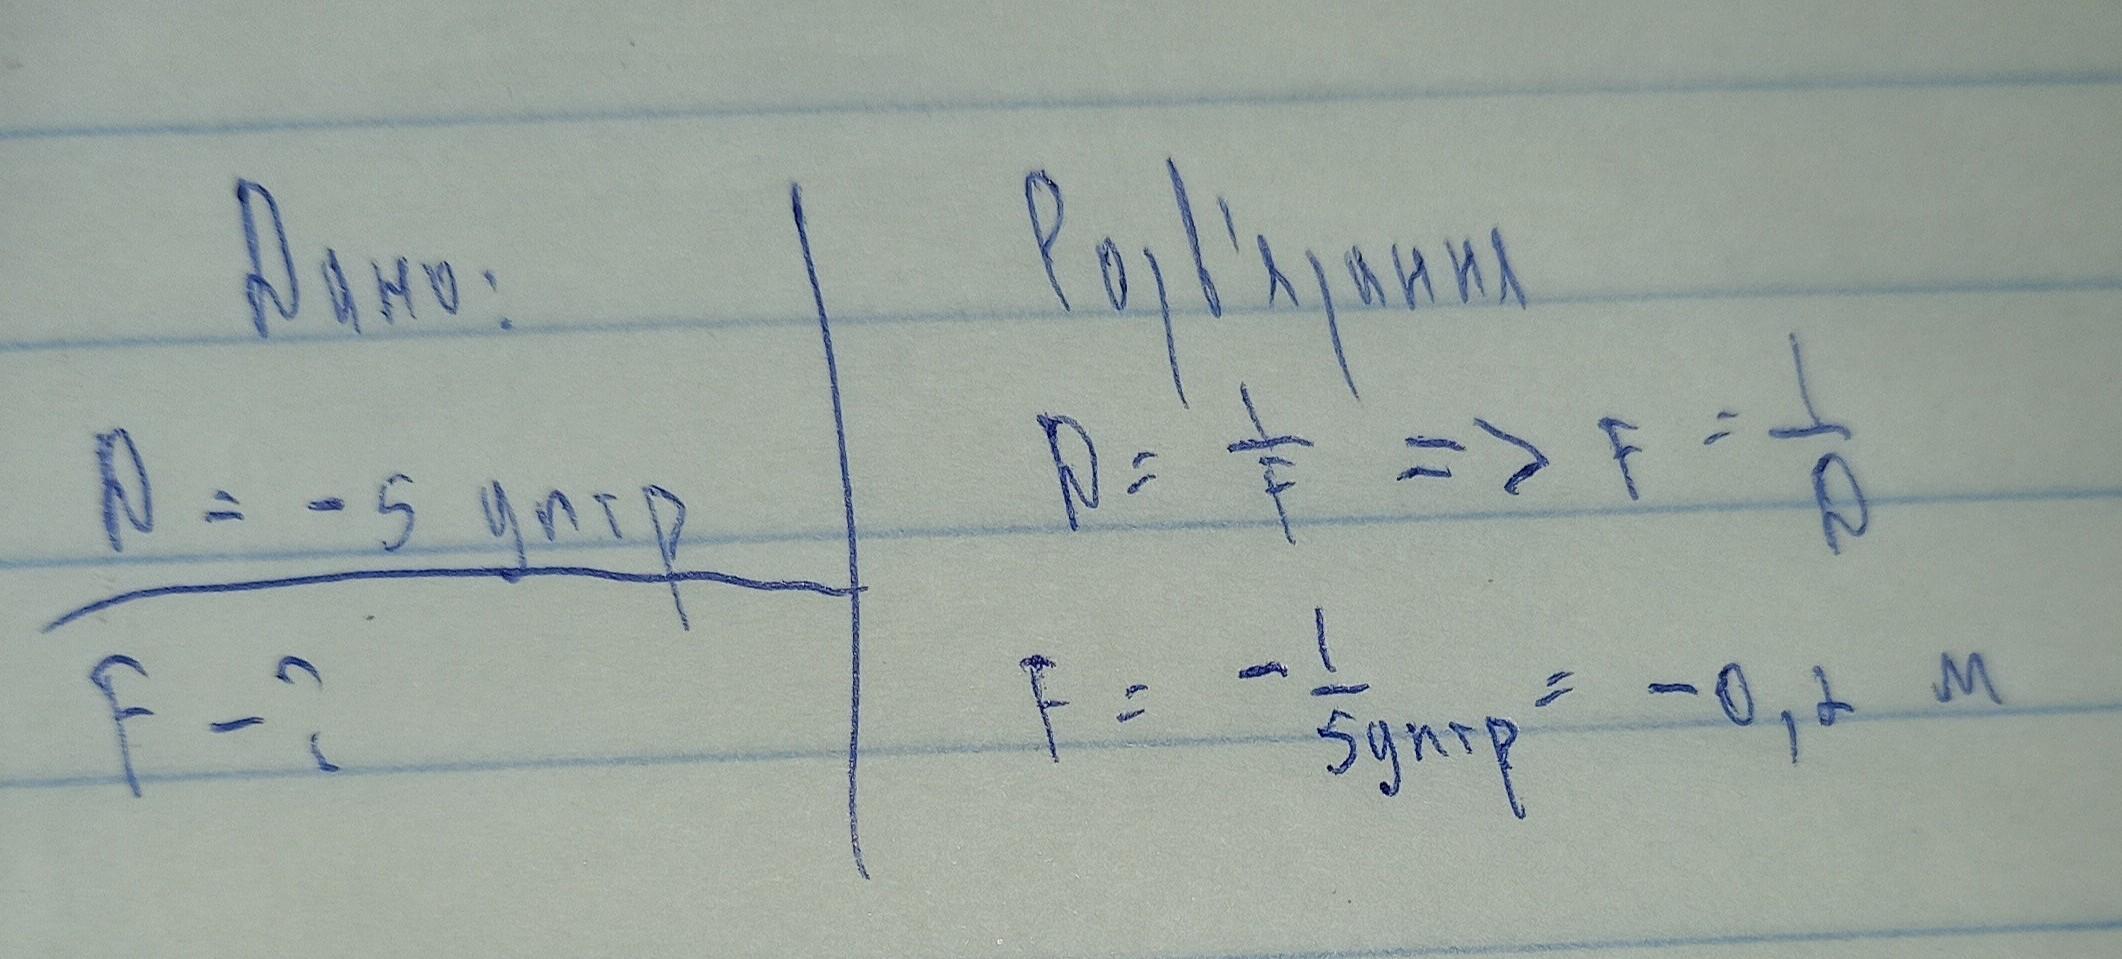 Дано:
D = -5 дптр
F - ?
Розв'язання
D = 1/F => F = 1/D
F = - 1/5дптр = -0,2 м